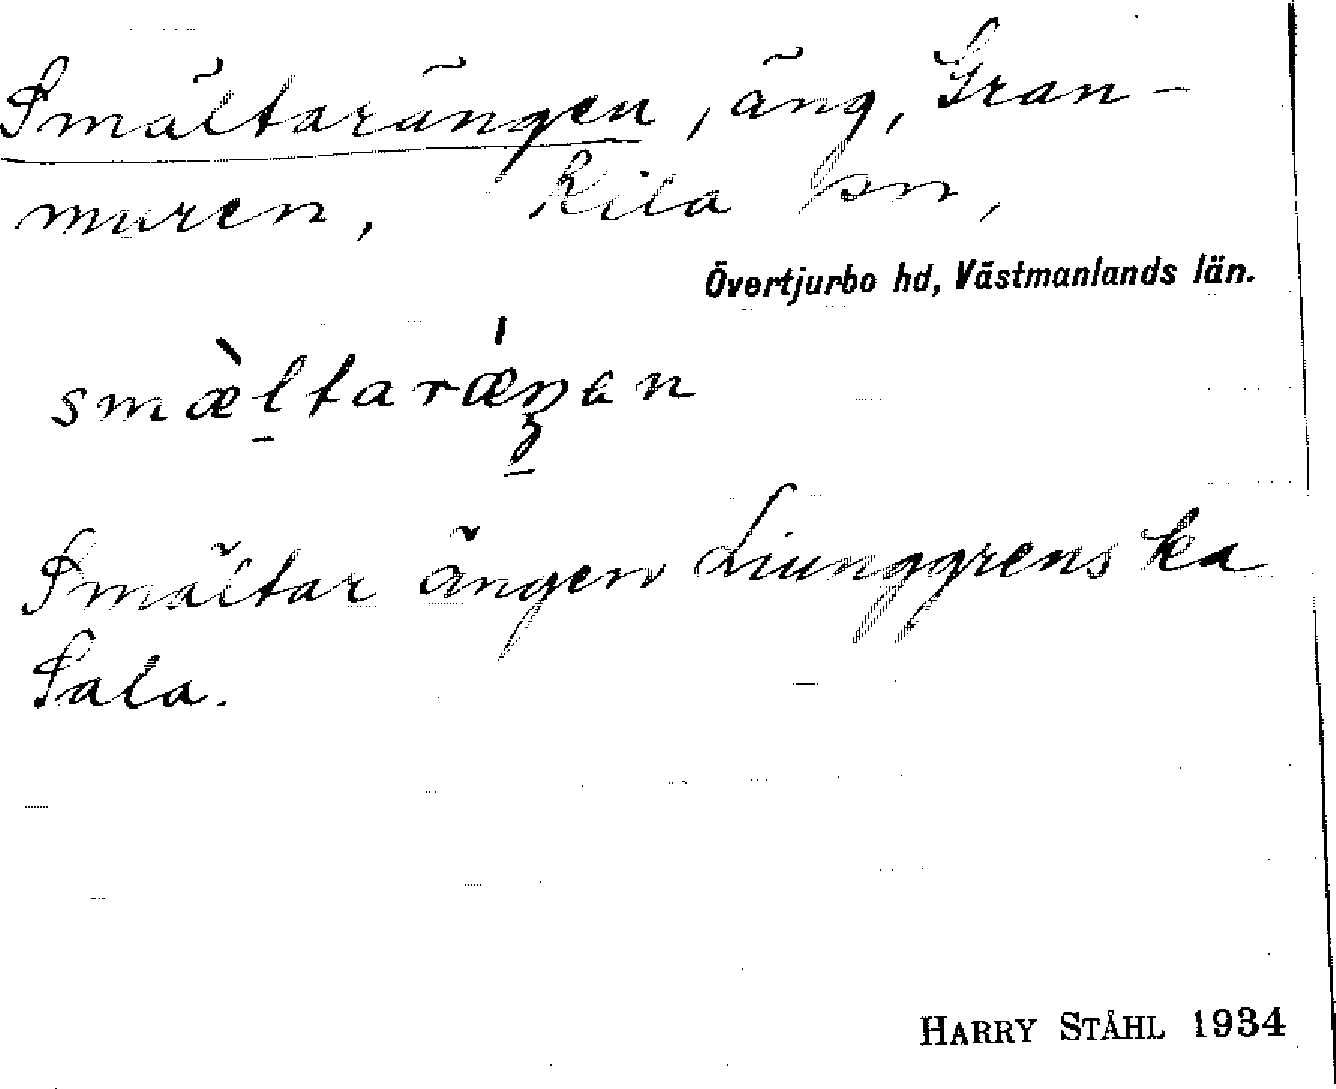 Smältarängen, äng, Gran-
muren, Kila sn,
Övertjurbo hd, Västmanlands län.
smæ̀l̠tarǽŋ̠an
Smältar ängen Liunggrenska
Sala.
HARRY STÅHL 1934